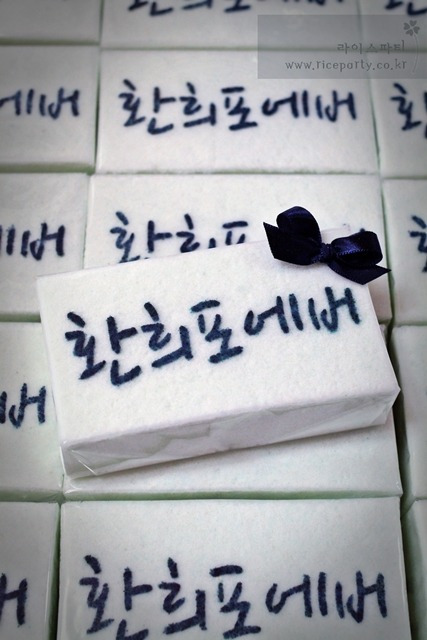 라이스파티
www.riceparty.co.kr
에버
환희포에버
환
에버
환희포
환
환희포에버
에버
환희포에버